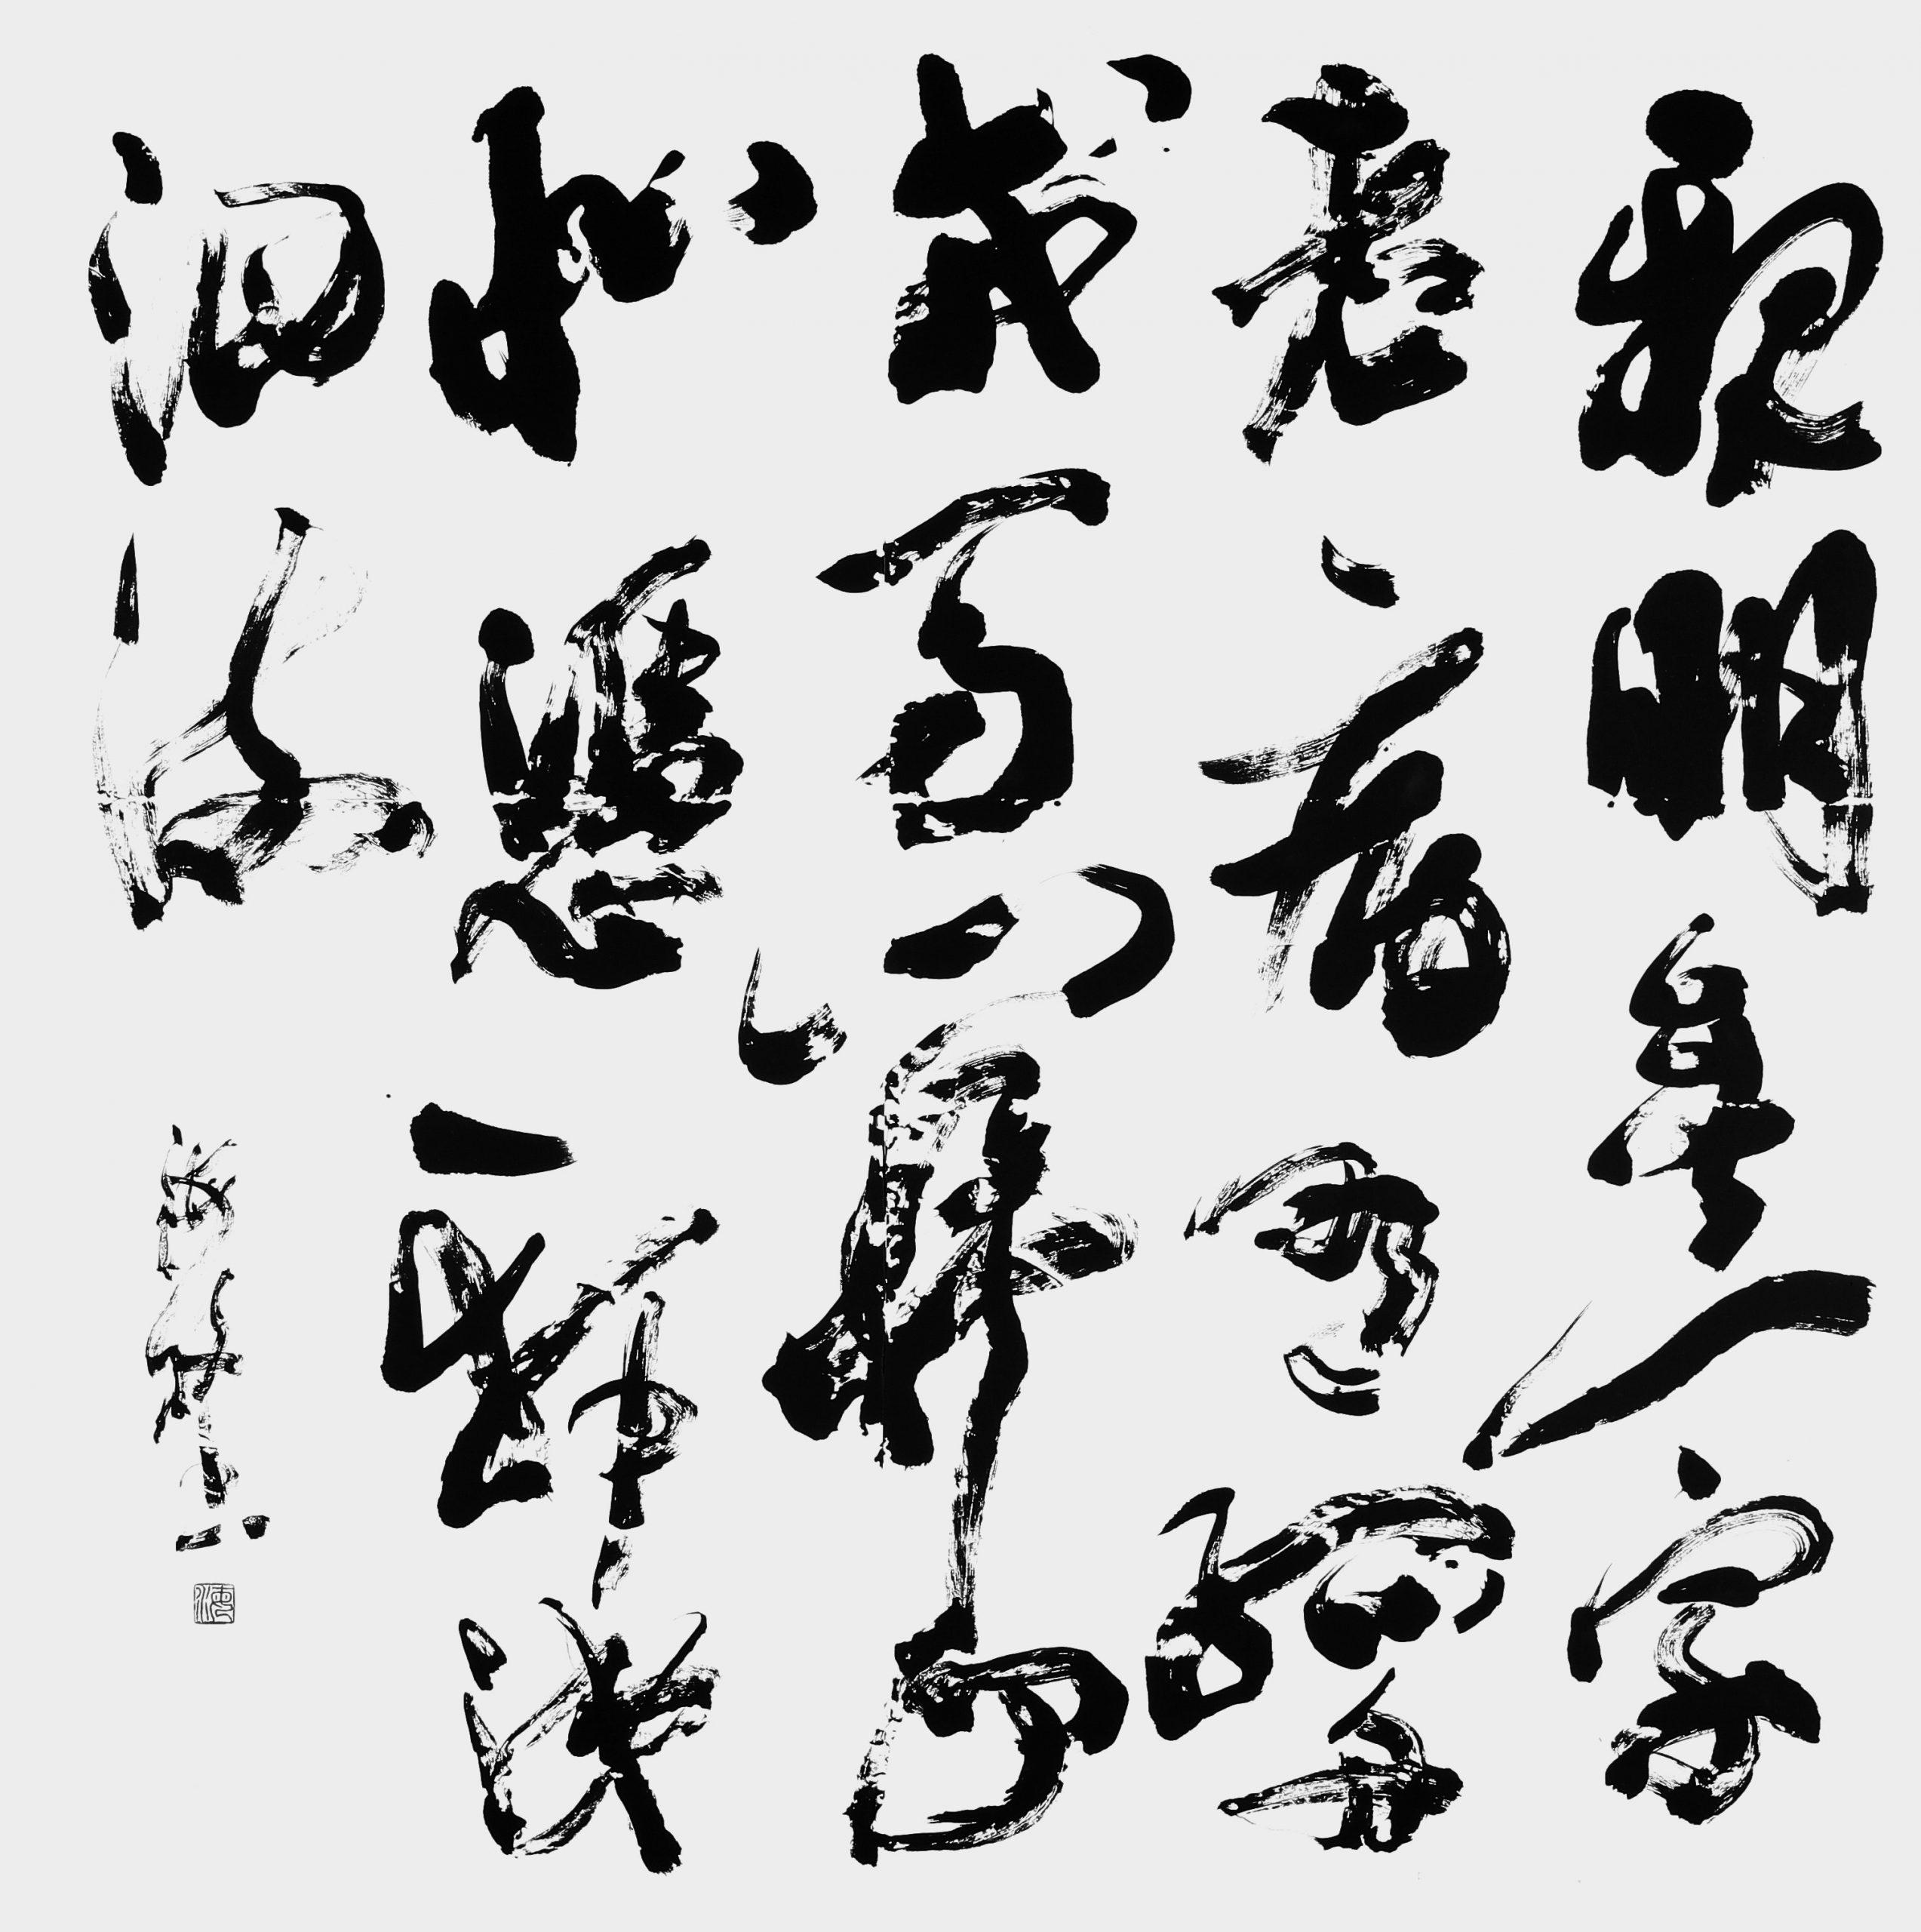 親朋無一字
老病有孤舟
戎馬關山
北憑軒涕
泗流